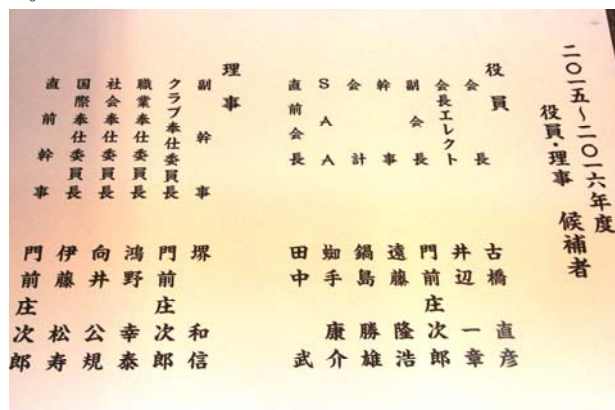 二〇一五～二〇一六年度
役員・理事 候補者
役員
会長 古橋 直彦
会長エレクト 井辺 一章
副会長 門前庄次郎
幹事 遠藤 隆浩
会計 鍋島 勝雄
SAA 蜘手 康介
直前会長 田中 武
理事
副幹事 堺 和信
クラブ奉仕委員長 門前庄次郎
職業奉仕委員長 鴻野 幸泰
社会奉仕委員長 向井 公規
国際奉仕委員長 伊藤 松寿
直前幹事 門前庄次郎